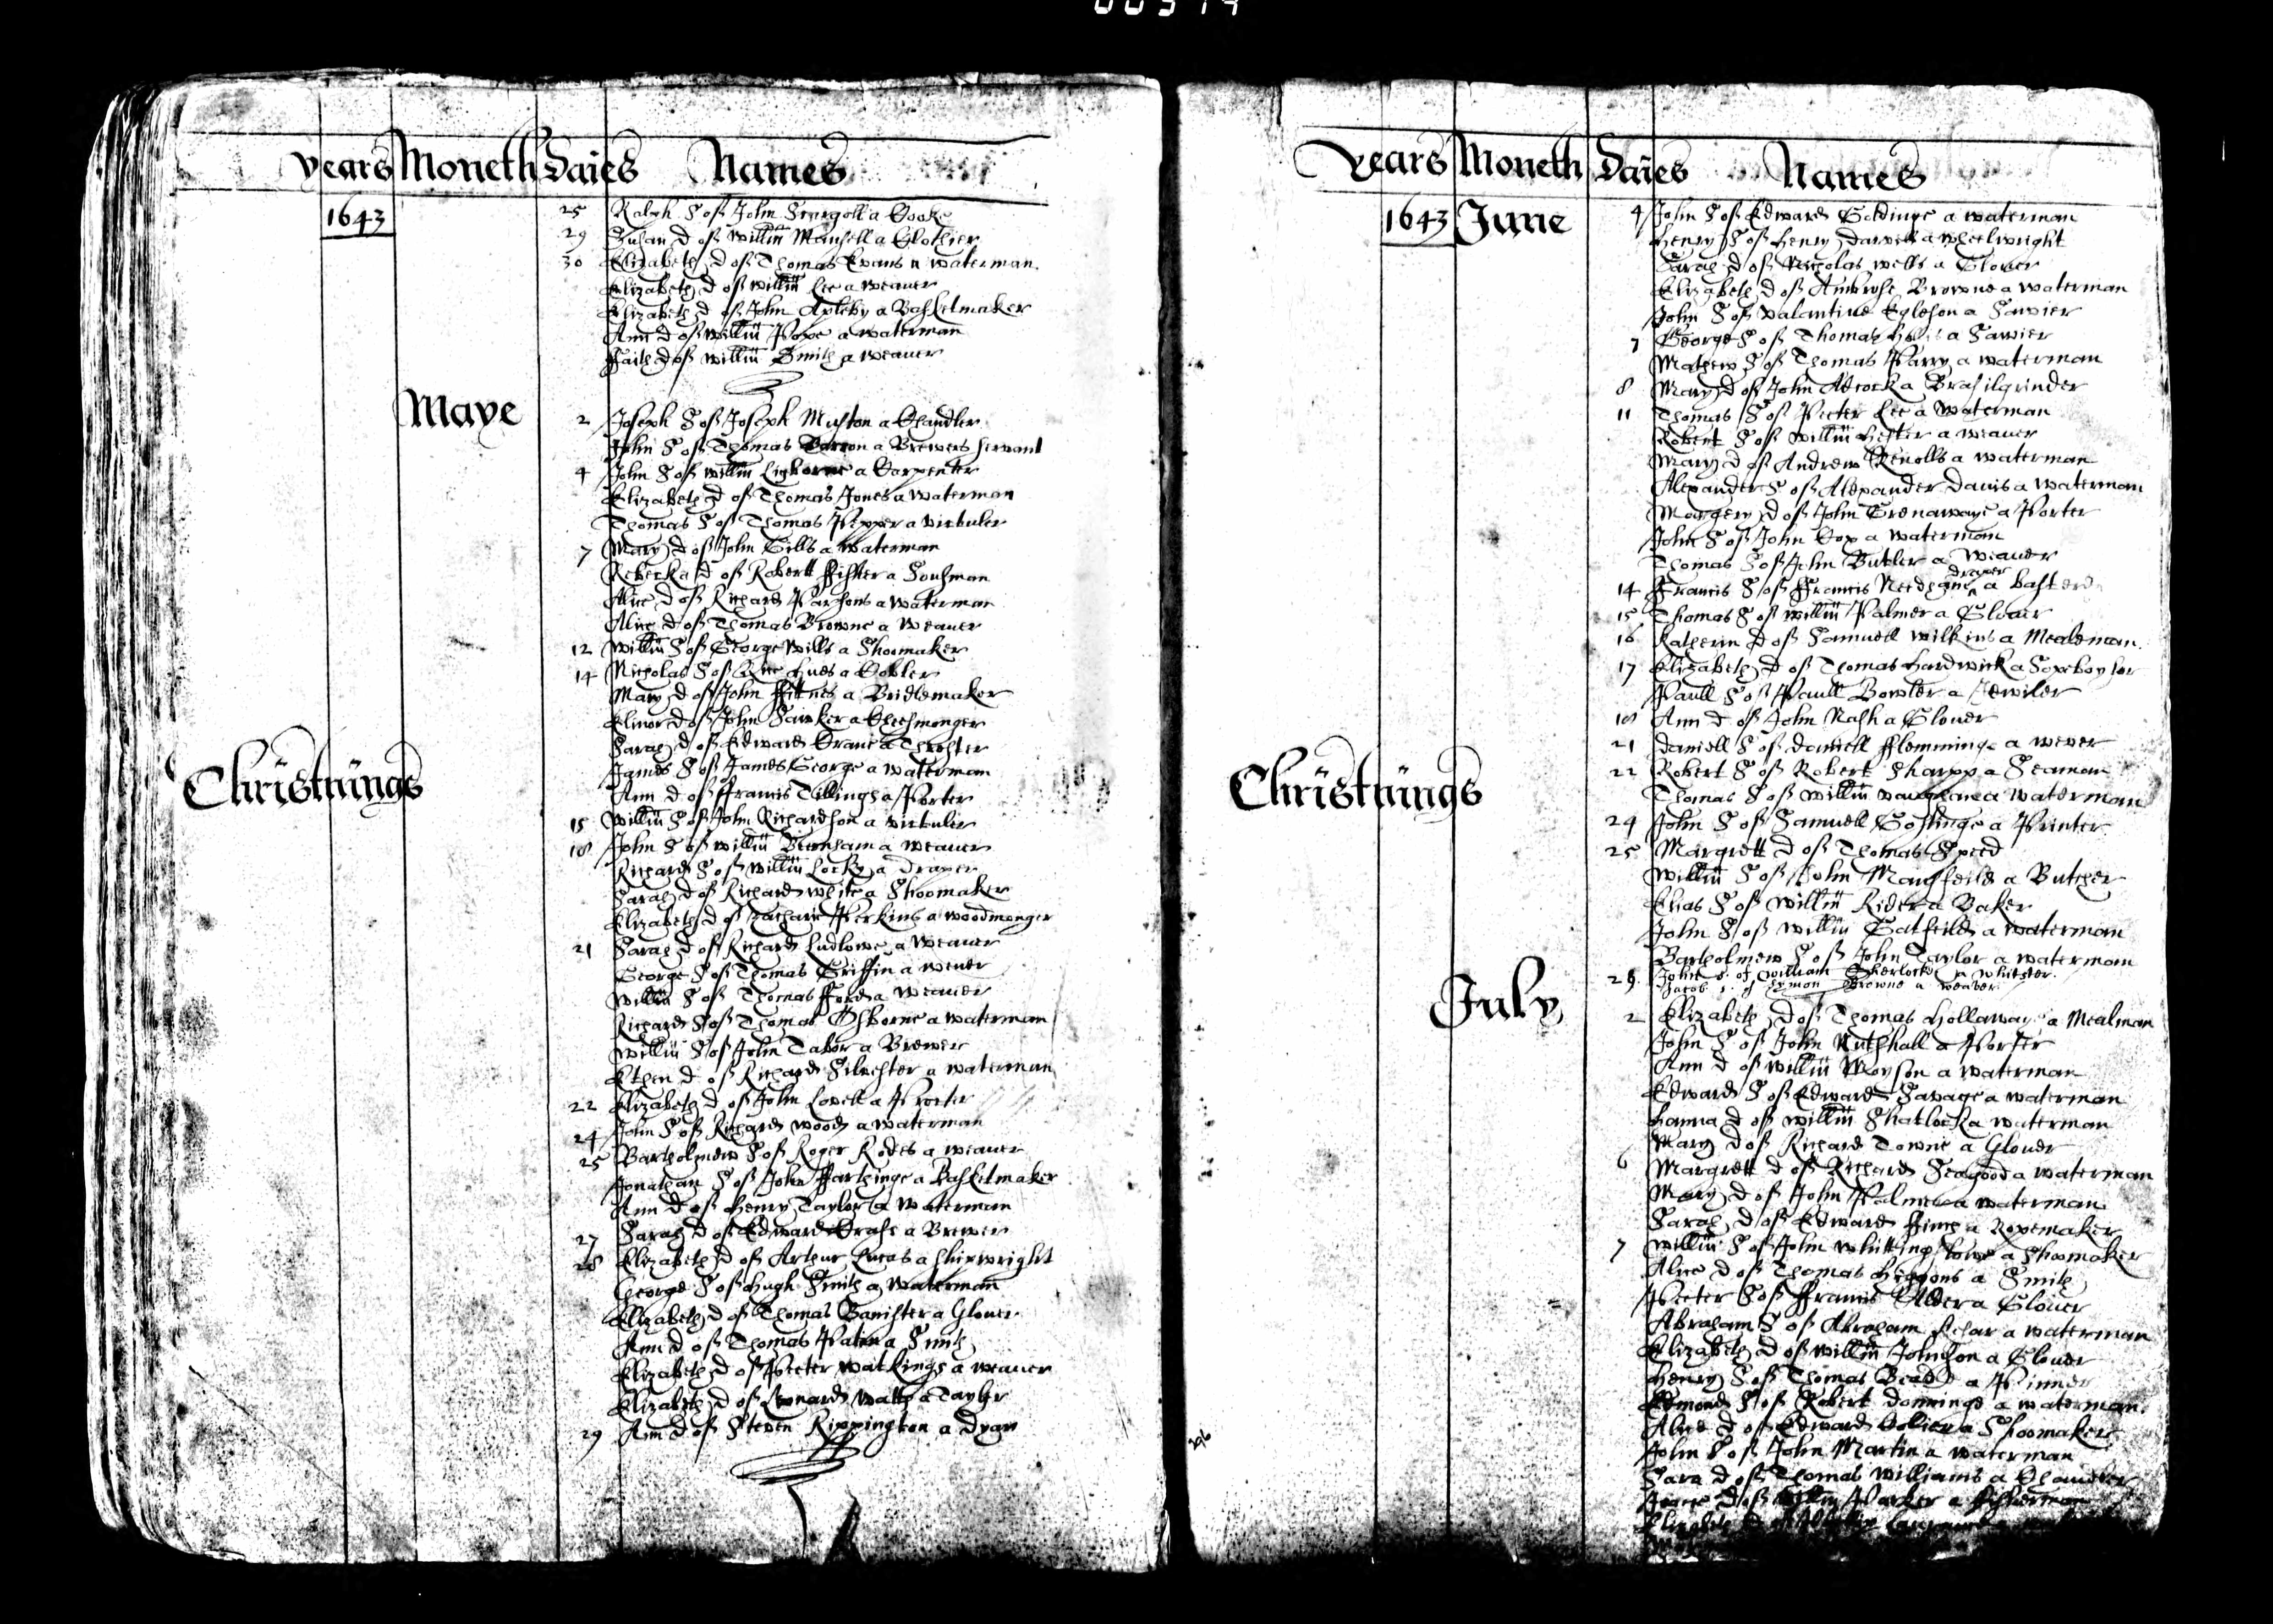 years Moneth Daies Names
1643
25 Ralph S of John a Cooke
29 Susan d of Willm Mansell a Clothier
30 Elizabeth d of Thomas Evans a waterman
Elizabeth d of Willm Lee a weauer
Elizabeth d of John Apleby a Basketmaker
Ann d of Willm Pope a waterman
Faith d of Willm Smith a weauer
Maye
2 Joseph S of Joseph Muston a Chandler
John S of Thomas a Brewers servant
4 John S of Willm a Carpenter
Elizabeth d of Thomas Jones a waterman
Thomas S of Thomas Pepper a victuler
7 Mary d of John Gills a waterman
Rebecka d of Robertt ffisher a
Alice d of Richard Parsons a waterman
Alice d of Thomas Browne a weauer
12 Willm S of George Wills a Shoomaker
14 Nicholas S of Rice Hues a Cobler
Mary d of John a Bridlemaker
Elinor d of John a Chesmonger
Sarah d of Edward a
James S of James George a waterman
Ann d of ffrancis Tillinge a Porter
15 Willm S of John Richardson a victuler
18 John S of Willm a weauer
Richard S of Willm Locky a Draper
Sarah d of Richard White a Shoomaker
Elizabeth d of Zacharie Perkins a woodmonger
21 Sarah d of Richard Ludlowe a weauer
George S of Thomas Griffin a weuer
Willm S of Thomas fford a weauer
Richard S of Thomas Osborne a waterman
Willm S of John Tabor a Brewer
d of Richard Silvester a waterman
22 Elizabeth d of John Lovell a Porter
24 John S of Richard Wood a waterman
25 Bartholmew S of Roger Rodes a weauer
Jonathan S of John ffarthinge a Basketmaker
Ann d of Henry Taylor a waterman
27 Sarah d of Edward a Brewer
28 Elizabeth d of Arthur Lucas a shipwright
George S of Hugh Smith a waterman
Elizabeth d of Thomas Banister a Glouer
Ann d of Thomas a Smith
Elizabeth d of Peeter Watkings a weauer
Elizabeth d of Leonard Watts a Taylor
29 Ann d of Steven Rippington a Dyar
Christnings
Years Moneth Daies Names
1643 June
4 John S of Edward Goldinge a waterman
Henry S of Henry a wheelwright
Sarah d of Nicholas Wells a Glouer
Elizabeth d of Ambrose Browne a waterman
John S of Valantine Egleson a Sawier
7 George S of Thomas a Sawier
Mathew S of Thomas Parry a waterman
8 Mary d of John Adcock a Brasilgrinder
11 Thomas S of Peeter Lee a waterman
Robert S of Willm Hester a weauer
Mary d of Andrew a waterman
Alexander S of Alexander Dauis a waterman
Margery d of John Grenawaye a Porter
John S of John Cox a waterman
Thomas S of John Butler a weauer
draper
14 Francis S of ffrancis a basterd
15 Thomas S of Willm Palmer a
16 Katherin d of Samuell Wilkins a Mealeman
17 Elizabeth d of Thomas Hardwick a Sopeboyler
Paull S of Paull Bowler a Jewiler
18 Ann d of John Nash a Glouer
21 Daniell S of Daniell fflemminge a wever
22 Robert S of Robert Sharpp a Seaman
Thomas S of Willm a waterman
24 John S of Samuell Goslinge a Printer
25 Margrett d of Thomas Speed
Willm S of John Mansfeild a Butcher
Elias S of Willm Rider a Baker
John S of Willm Gatfeild a waterman
Bartholmew S of John Taylor a waterman
28 John s. of William Sherlocke a whitster
Jacob s. of Symon Browne a weaver
July
2 Elizabeth d of Thomas Hollaway a Mealman
John S of John Nuthall a Porter
Ann d of Willm Moyson a waterman
Edward S of Edward Savage a waterman
Hanna d of Willm Shatlock a waterman
Mary d of Richard Towne a Glouer
6 Margrett d of Richard Seagood a waterman
Mary d of John Palmer a waterman
Sarah d of Edward a Ropemaker
7 Willm S of John Whittingstowe a Shoomaker
Alice d of Thomas Higgons a Smith
Peeter S of ffrancis Alder a Glouer
Abraham S of Abraham a waterman
Elizabeth d of Willm Johnson a Glouer
Henry S of Thomas a Pinner
Edmond S of Robert Donnings a waterman
Alice d of Edward a Shoomaker
John S of John Martin a waterman
Sara d of Thomas Williams a Chandler
d of Willm Parker a ffisherman
Elizabeth d of
Christnings